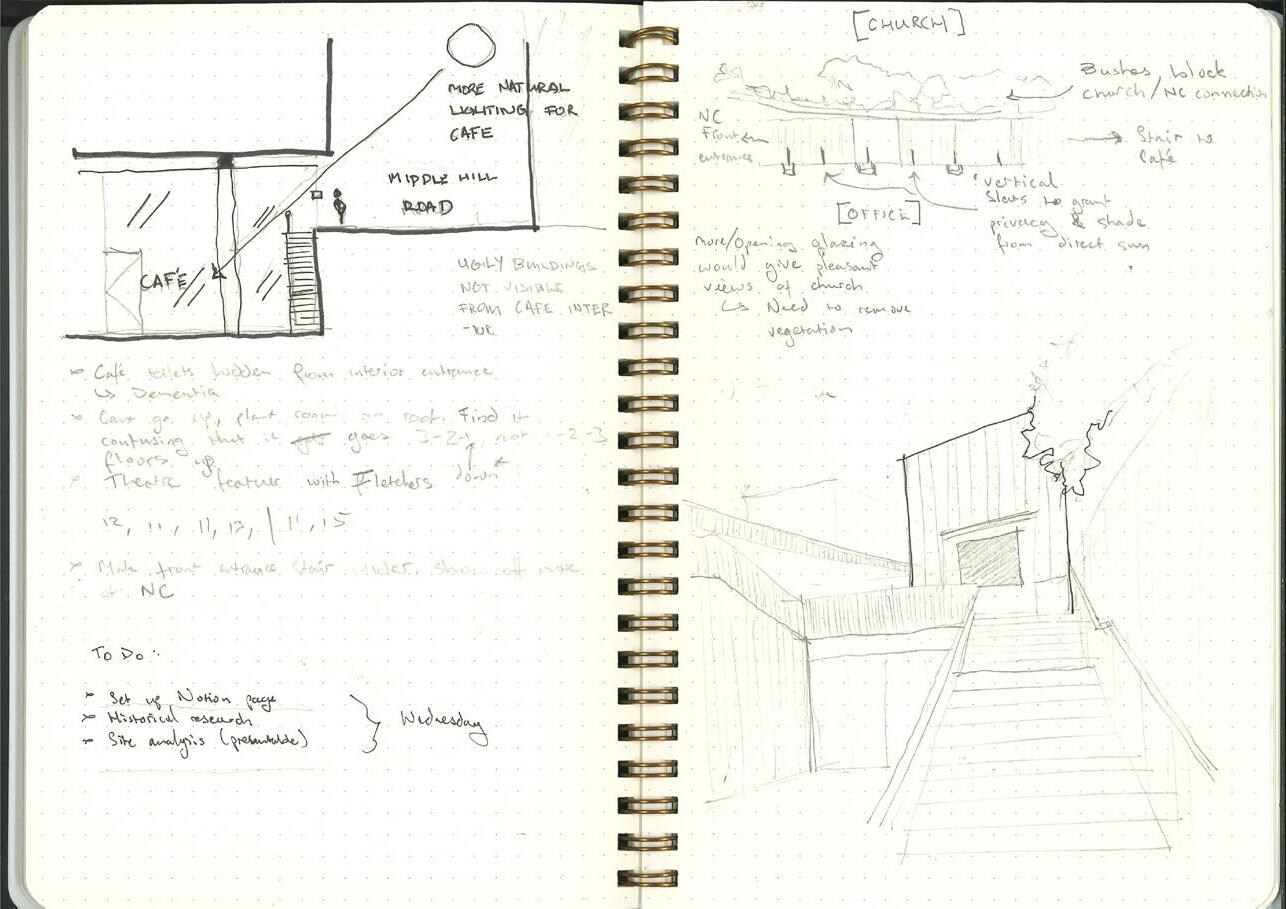 MORE NATURAL
LIGHTING FOR
CAFE
MIDDLE HILL
ROAD
CAFÉ
UGILY BUILDINGS
NOT VISIBLE
FROM CAFE INTER
-IOR
Café toilets hidden from interior entrance
↳ Dementia
Cant go up, plant room on roof. Find it
confusing that it goes 3-2-1, not 1-2-3
floors up
down
Theatre feature with Fletchers
12, 11, 11, 12, | 11, 15
Make front entrance stair wider, show off more
of NC
To Do:
Set up Notion page
Historical research
Site analysis (presentable)
Wednesday
[CHURCH]
Bushes block
church / NC connection
NC
Front
entrance
Stair to
Café
vertical
Slats to grant
privacy & shade
from direct sun
[OFFICE]
more/opening glazing
would give pleasant
views of church
↳ Need to remove
vegetation